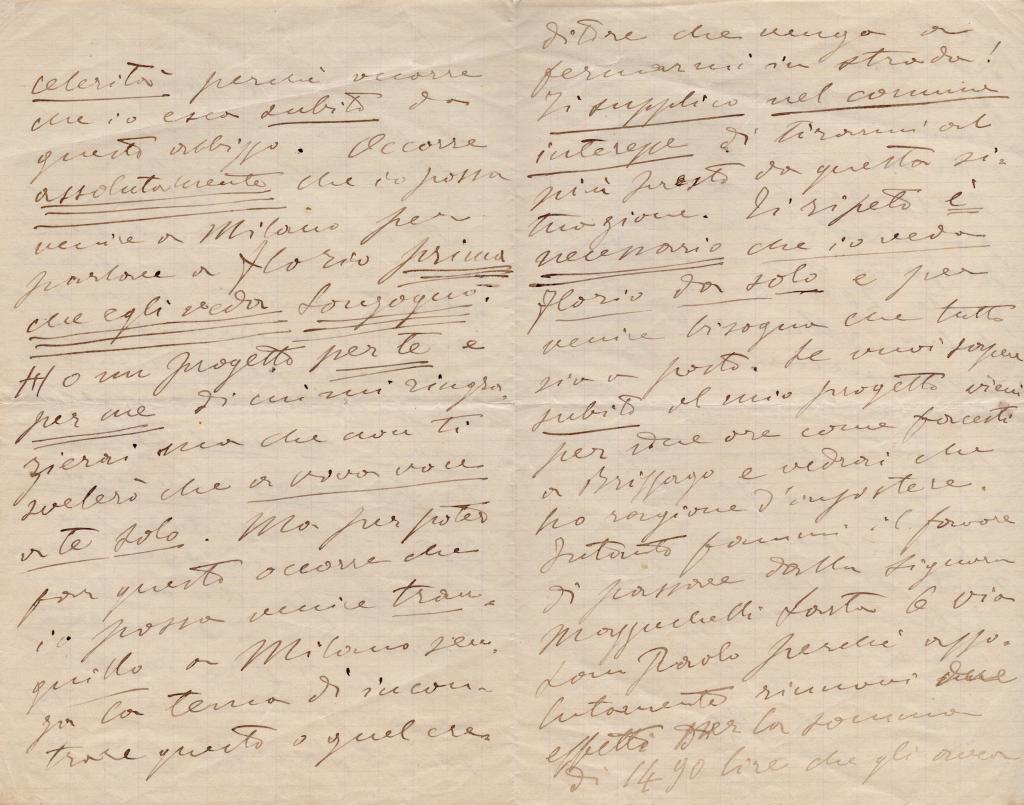 celerità perchè occorre
che io esca subito da
questo abisso. Occorre
assolutamente che io possa
venire a Milano per
parlare a Florio prima
che egli veda Sonzogno.
Ho un progetto per te e
per me di cui mi ringra-
zierai ma che non ti
svelerò che a viva voce
a te solo. Ma per poter
far questo occorre che
io possa venire tran-
quillo a Milano sen-
za la tema di incon-
trare questo o quel cre-
ditore che venga a
fermarmi in strada!
Ti supplico nel comune
interesse di tirarmi al
più presto da questa si-
tuazione. Ti ripeto è
necessario che io veda
Florio da solo e per
venire bisogna che tutto
sia a posto. Se vuoi sapere
subito il mio progetto vieni
per due ore come facesti
a Brissago e vedrai che
ho ragione d'insistere.
Intanto fammi il favore
di passare dalla Signora
Mazzuchelli Sarta 6 via
San Paolo perchè asso-
lutamente rinnovi due
effetti per la somma
di 1490 lire che gli avea